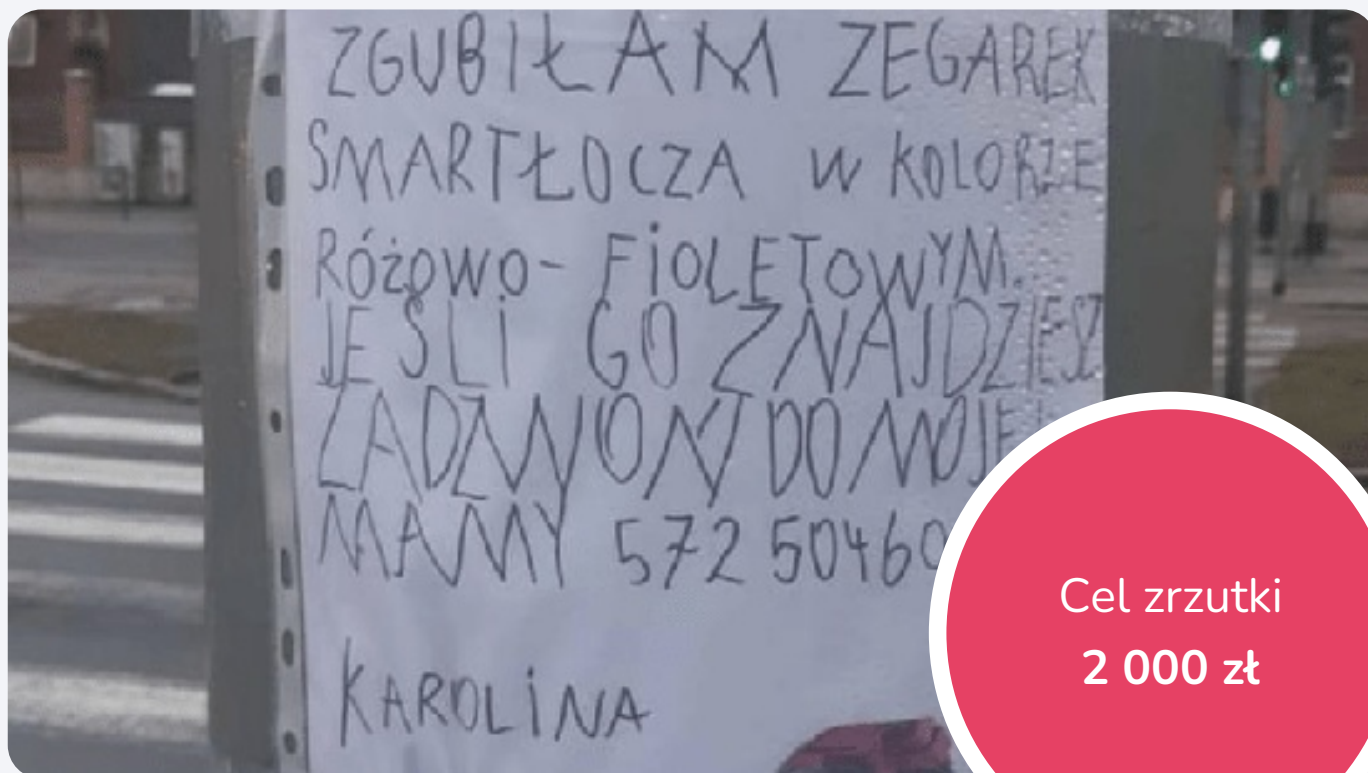 ZGUBIŁAM ZEGAREK
SMARTŁOCZA W KOLORZE
RÓŻOWO-FIOLETOWYM.
JEŚLI GO ZNAJDZIESZ
ZADZWOŃ DO MOJEJ
MAMY 572 50460
KAROLINA
Cel zrzutki
2 000 zł